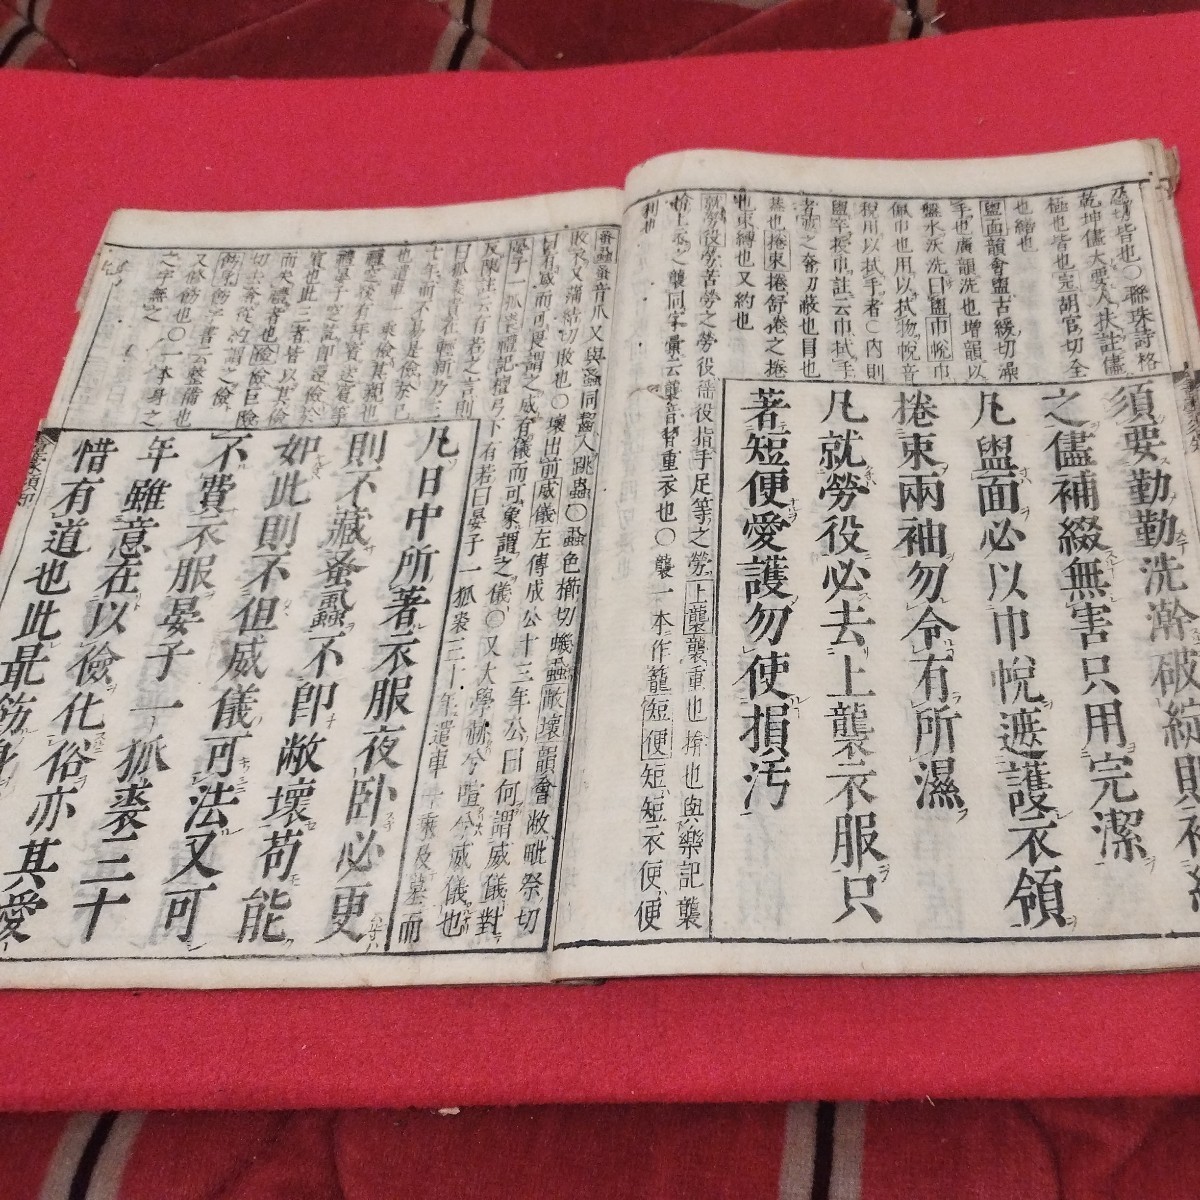 忍切皆也〇聯珠詩格
乾坤儘大要人扶註儘
極也皆也完胡官切全
也緒也
盥面韻會盥古緩切澡
手也廣韻洗也增韻以
盤水沃洗曰盥巾帨巾
佩巾也用以拭物帨音
稅用以拭手者〇內則
盥卒授巾註云巾拭手
者遮之奢切蔽也目也
甚也捲束捲舒卷之捲
也束縛也又約也
須要勤勤洗澣破綻則補
之儘補綴無害只用完潔
凡盥面必以巾帨遮護衣領
捲束兩袖勿令有所濕
凡就勞役必去上襲衣服只
著短便愛護勿使損汚
就勞役勞苦勞之勞役徭役指手足等之勞上襲襲重也揜也與樂記襲
揜上衣之襲同字彙云襲音習重衣也〇襲一本作籠短便短短衣便便
利也
蚤蝨蚤音爪又與蚤同齧人跳蟲〇蝨色櫛切蟣蝨敝壞韻會敝毗祭切
敗衣又蒲結切敗也〇壞出前威儀左傳成公十三年公曰何謂威儀對
曰有威而可畏謂之威有儀而可象謂之儀〇又大學赫兮喧兮威儀也
晏子一狐裘禮記檀弓下有若曰晏子一狐裘三十年遣車一乘及墓而
反陳註云有若之言則
曰狐裘貴在輕新乃三
十年而不易是儉於己
也遣車一乘儉其親也
凡日中所著衣服夜臥必更
則不藏蚤蝨不卽敝壞苟能
如此則不但威儀可法又可
不費衣服晏子一狐裘三十
年雖意在以儉化俗亦其愛
惜有道也此最飭身
而失禮者也儉巨險
切去奢從約謂之儉
飭身飭字書云整備也
又修飭也〇一本身之
之字無之